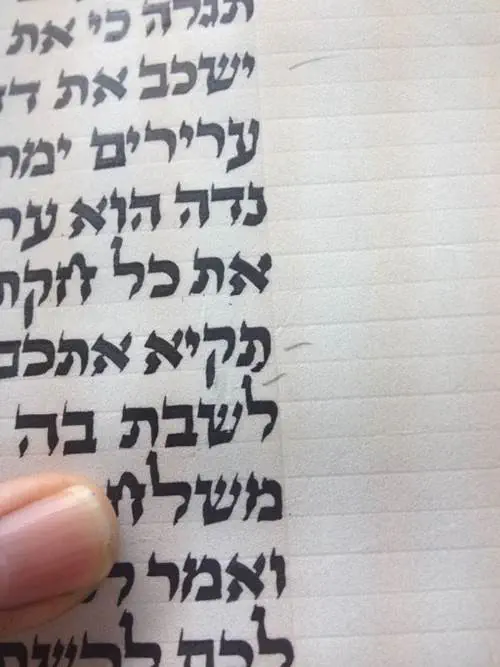 תגלה כי את
ישכב את דד
ערירים ימת
נדה הוא ער
את כל חקת
תקיא אתכם
לשבת בה
משלח
ואמר
לכם לרשת